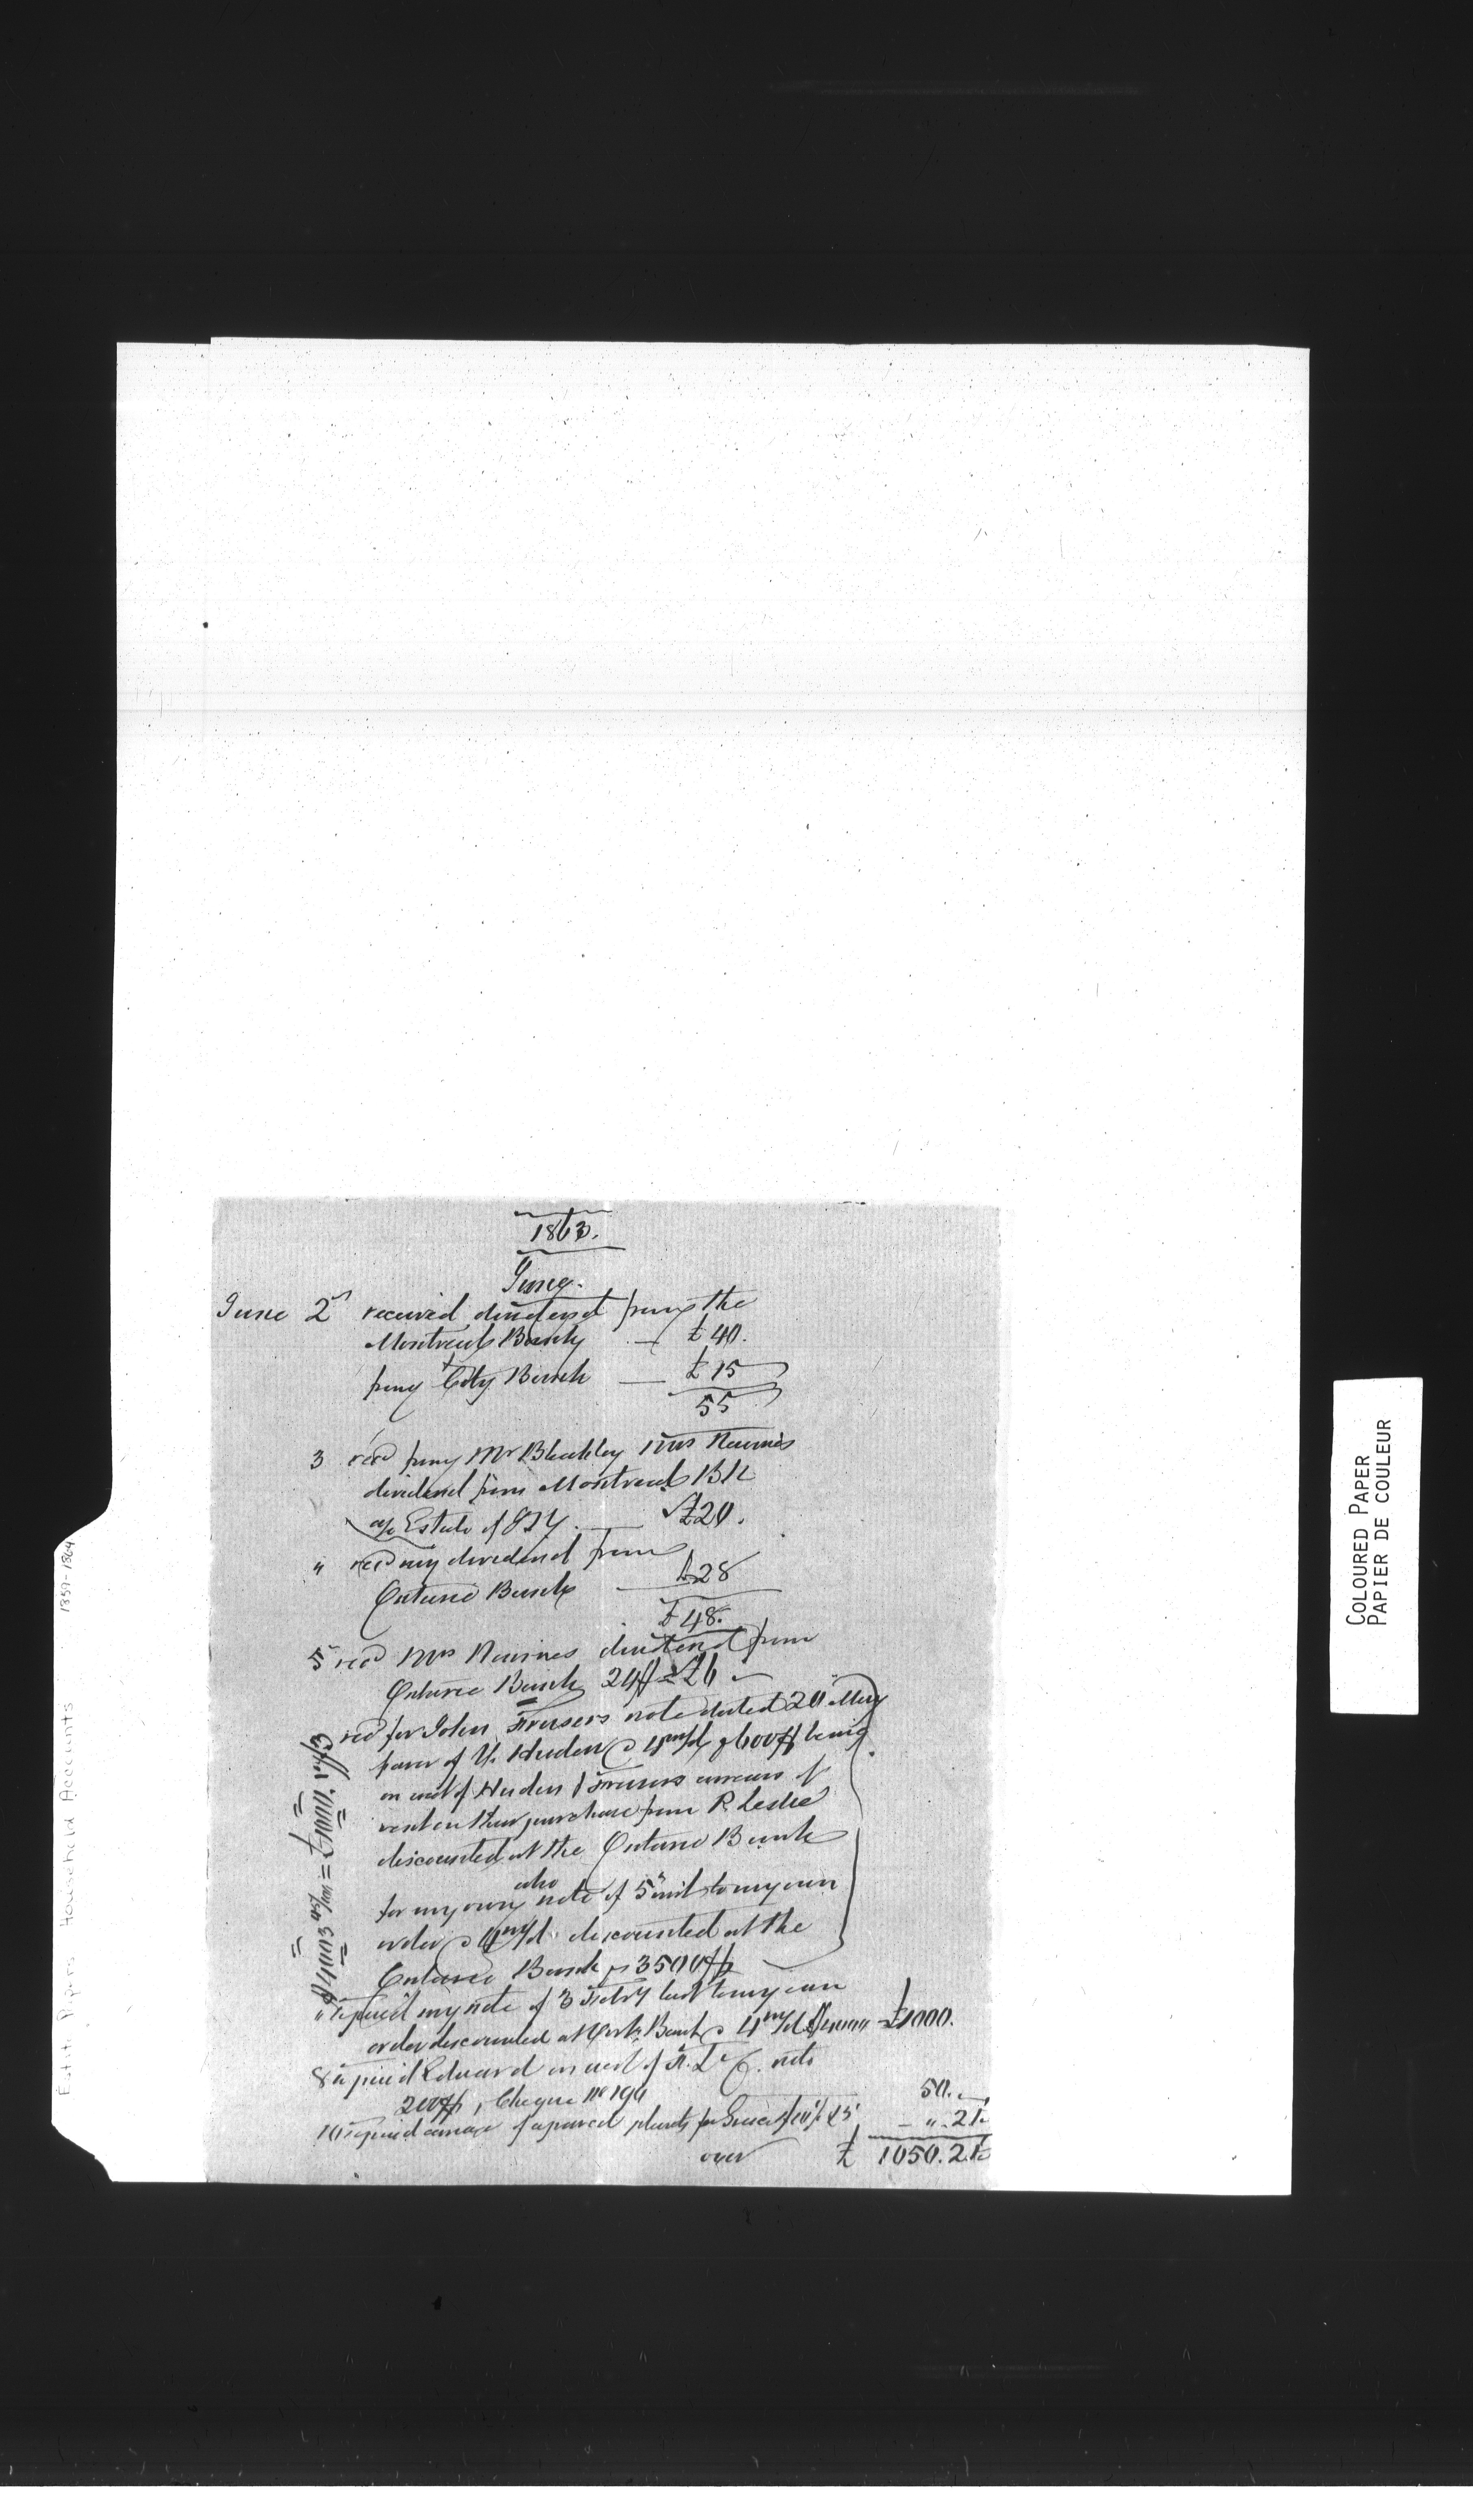 1863.
June.
June 2 received dividend from the
Montreal Bank — £40.
from City Bank — £15
55
3 recd from Mr Bleakley Mrs
dividend from Montreal Bk
a/c Estate of — £20.
" recd my dividend from
Ontario Bank — £28
£48.
5 recd Mrs dividend from
Ontario Bank 24$ = £6
recd for John Frasers note dated 20 May
favor of @ 4 m/d 600$ being
on acct of & Frasers arrears of
rent on their purchase from R. Leslie
discounted at the Ontario Bank
also
for my own note of 5 inst to my own
order @ 4 m/d discounted at the
Ontario Bank 3500$
$4003 = £1000.
" paid my note of 3 Feby last to my own
order discounted at Bank @ 4 m/d = £1000.
8 paid Edward on acct of note
200$, Cheque No 50.
10 paid carriage of a parcel plants from 2.
over £ 1050.2.
Estate Papers Household Accounts 1857-1864
COLOURED PAPER
PAPIER DE COULEUR